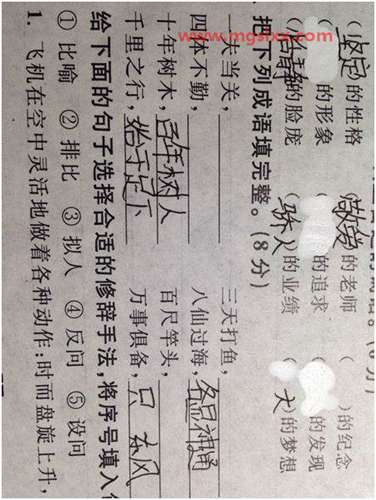 (坚定)的性格 (敬爱)的老师 ( )的纪念
的形象 的追求 的发现
的脸庞 (骄人)的业绩 大)的梦想
把下列成语填完整。(8分)
一夫当关, 三天打鱼,
四体不勤, 八仙过海,各显神通
十年树木,百年树人 百尺竿头,
千里之行,始于足下 万事俱备,只 东风
给下面的句子选择合适的修辞手法,将序号填入
① 比喻 ② 排比 ③ 拟人 ④ 反问 ⑤ 设问
1. 飞机在空中灵活地做着各种动作:时而盘旋上升,